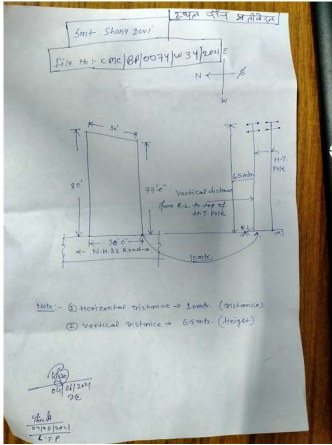 स्थल रीन प्रतिवेदन
Smt Shanti Devi
File No:- CMC/BP/0074/W34/2021
E
N
S
W
30'
80'
77'0"
65mtr.
H.T. Pole
Vertical distance
from R.L to top of
H.T. Pole
R.L
30'0"
N.H.32 Road
10mtr.
Note:- ① Horizontal distance → 10mtr. (Distance)
② Vertical distance → 6.5mtr. (Height)
04/06/2021
JE
04/06/2021
L.T.P